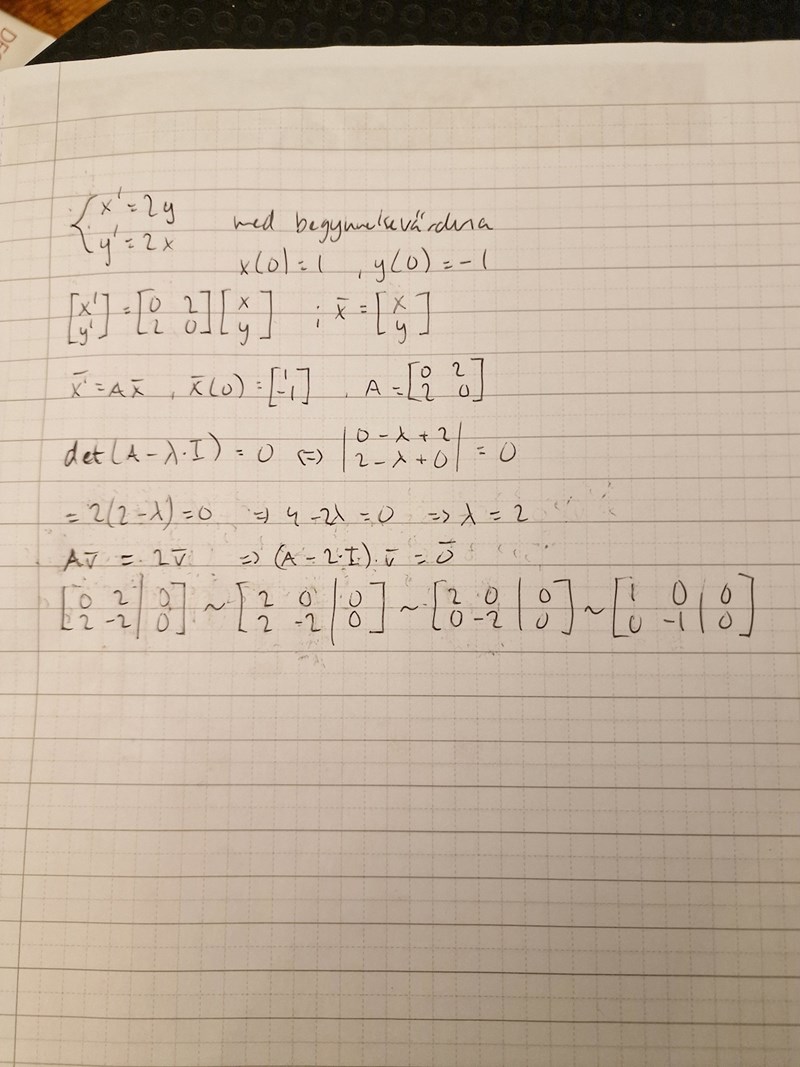 { x' = 2y
y' = 2x med begynnelsevärdena
x(0) = 1 , y(0) = -1
[x' y'] = [0 2; 2 0] [x y] ; x̄ = [x y]
x̄' = Ax̄ , x̄(0) = [1 -1] , A = [0 2; 2 0]
det(A - λ·I) = 0 ⇔ |0 - λ + 2; 2 - λ + 0| = 0
= 2(2 - λ) = 0 ⇒ 4 - 2λ = 0 ⇒ λ = 2
Av̄ = 2v̄ ⇒ (A - 2·I)·v̄ = 0̄
[0 2 | 0; 2 -2 | 0] ~ [2 0 | 0; 2 -2 | 0] ~ [2 0 | 0; 0 -2 | 0] ~ [1 0 | 0; 0 -1 | 0]